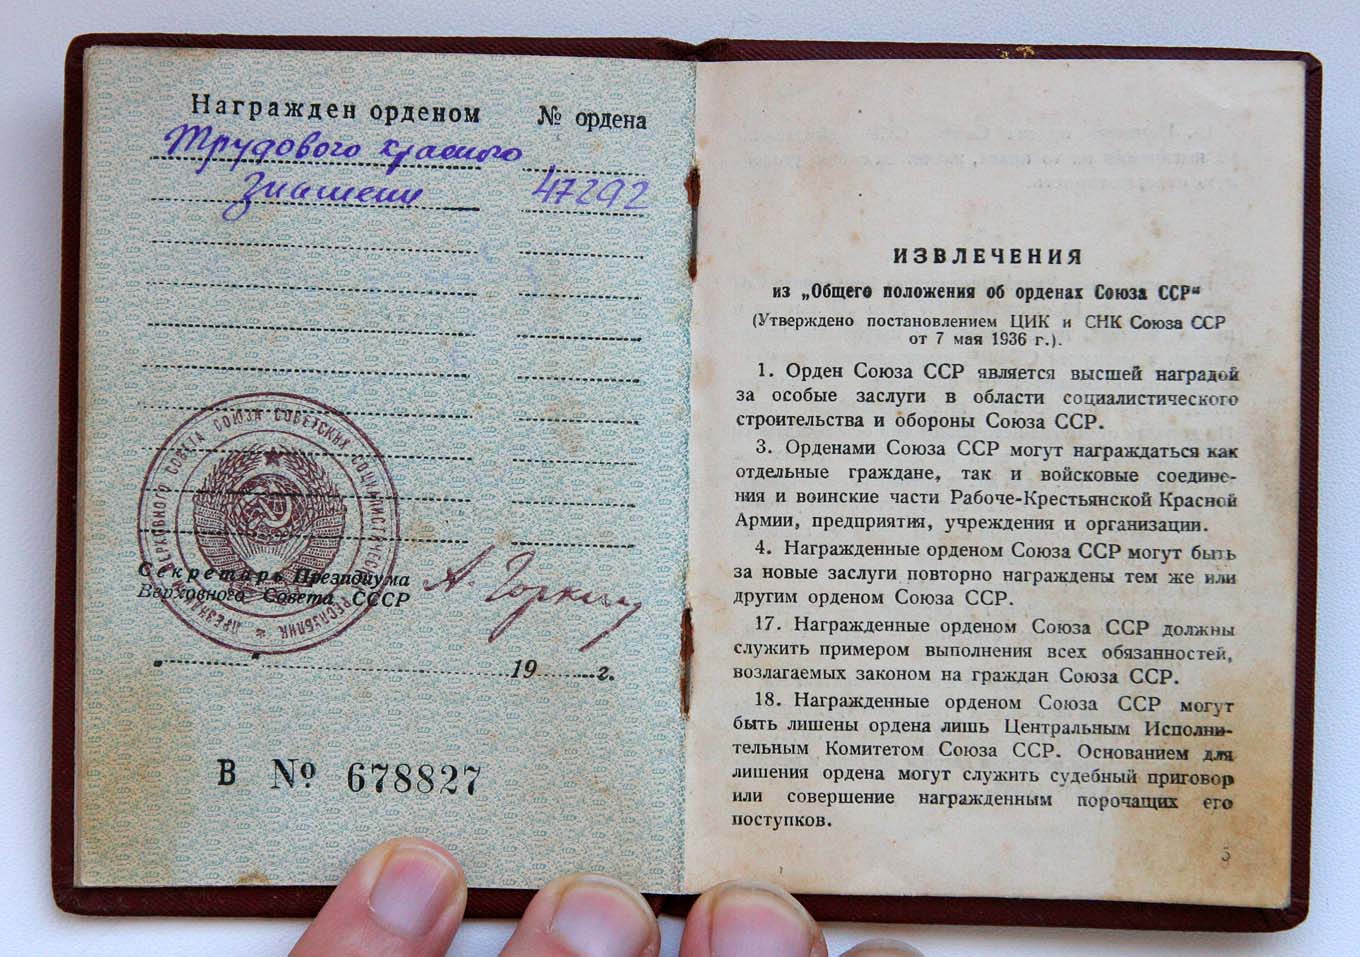 Награжден орденом № ордена
Трудового красного
Знамени 47292
ПРЕЗИДИУМ ВЕРХОВНОГО СОВЕТА СОЮЗА СОВЕТСКИХ СОЦИАЛИСТИЧЕСКИХ РЕСПУБЛИК
Секретарь Президиума
Верховного Совета СССР
А. Горкин
19 г.
В № 678827
ИЗВЛЕЧЕНИЯ
из „Общего положения об орденах Союза ССР“
(Утверждено постановлением ЦИК и СНК Союза ССР
от 7 мая 1936 г.).
1. Орден Союза ССР является высшей наградой
за особые заслуги в области социалистического
строительства и обороны Союза ССР.
3. Орденами Союза ССР могут награждаться как
отдельные граждане, так и войсковые соедине-
ния и воинские части Рабоче-Крестьянской Красной
Армии, предприятия, учреждения и организации.
4. Награжденные орденом Союза ССР могут быть
за новые заслуги повторно награждены тем же или
другим орденом Союза ССР.
17. Награжденные орденом Союза ССР должны
служить примером выполнения всех обязанностей,
возлагаемых законом на граждан Союза ССР.
18. Награжденные орденом Союза ССР могут
быть лишены ордена лишь Центральным Исполни-
тельным Комитетом Союза ССР. Основанием для
лишения ордена могут служить судебный приговор
или совершение награжденным порочащих его
поступков.
5